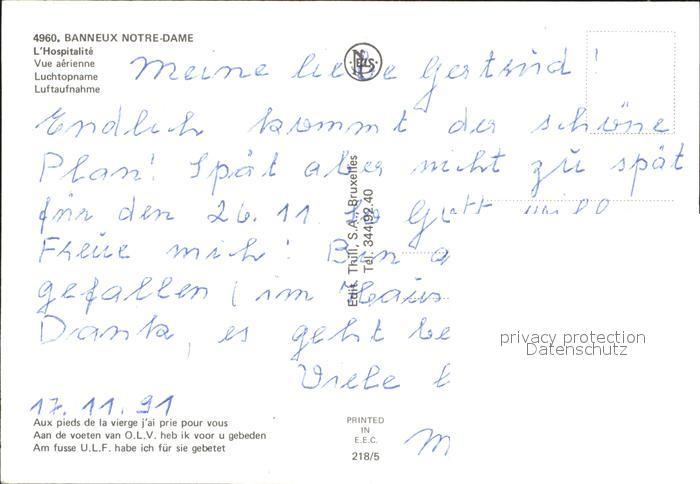 4960. BANNEUX NOTRE-DAME
L'Hospitalité
Vue aérienne
Luchtopname
Luftaufnahme
NELS
Meine liebe Gertrud!
Endlich kommt der schöne
Plan! Spät aber nicht zu spät
für den 26.11. So Gott will
Freue mich! Bin
gefallen (im Haus
Dank, es geht
Viele
17.11.91
Edit. Thill, S.A., Bruxelles
Tél. 344.92.40
privacy protection
Datenschutz
Aux pieds de la vierge j'ai prie pour vous
Aan de voeten van O.L.V. heb ik voor u gebeden
Am fusse U.L.F. habe ich für sie gebetet
PRINTED
IN
E.E.C.
218/5